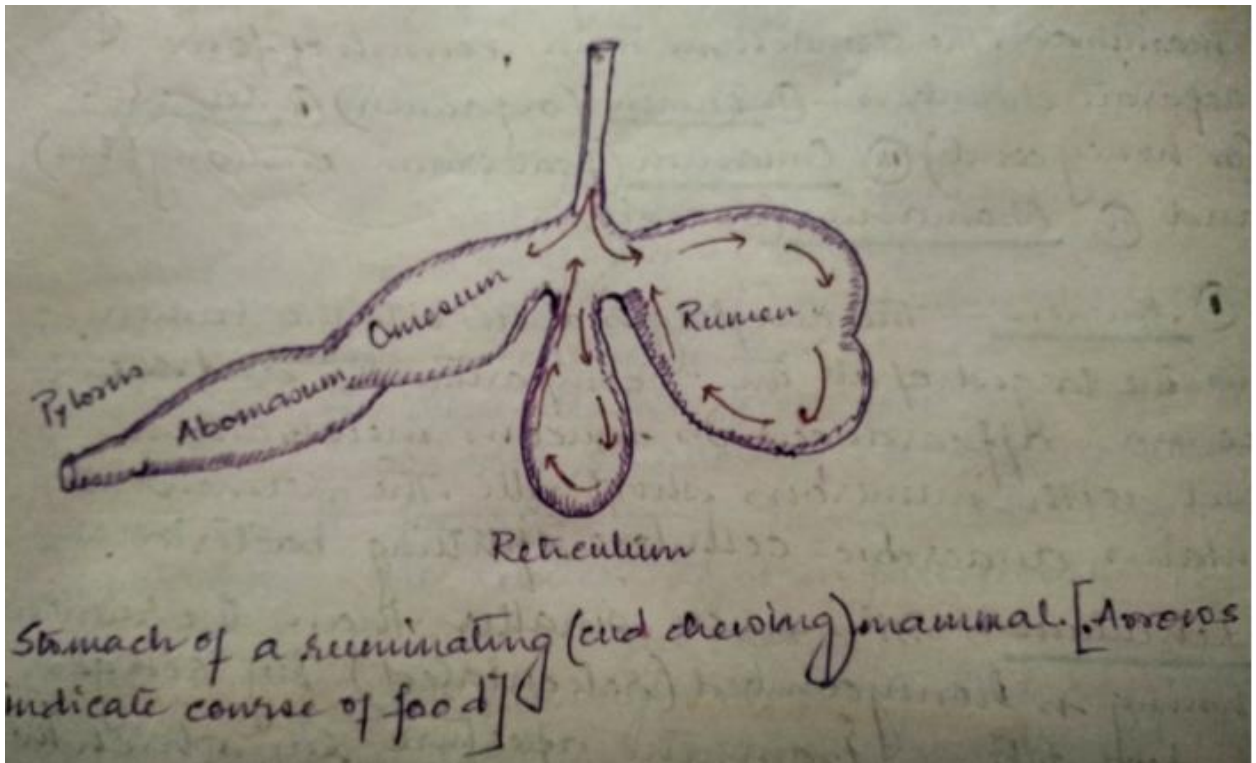 Rumen
Omasum
Pyloris
Abomasum
Reticulum
Stomach of a ruminating (cud chewing) mammal. [Arrows
indicate course of food]